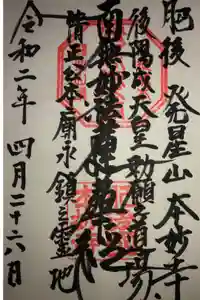 肥後 発星山 本妙寺
後陽成天皇勅願道場
南無妙法蓮華経
清正公本廟永鎮之霊地
令和二年 四月二十六日